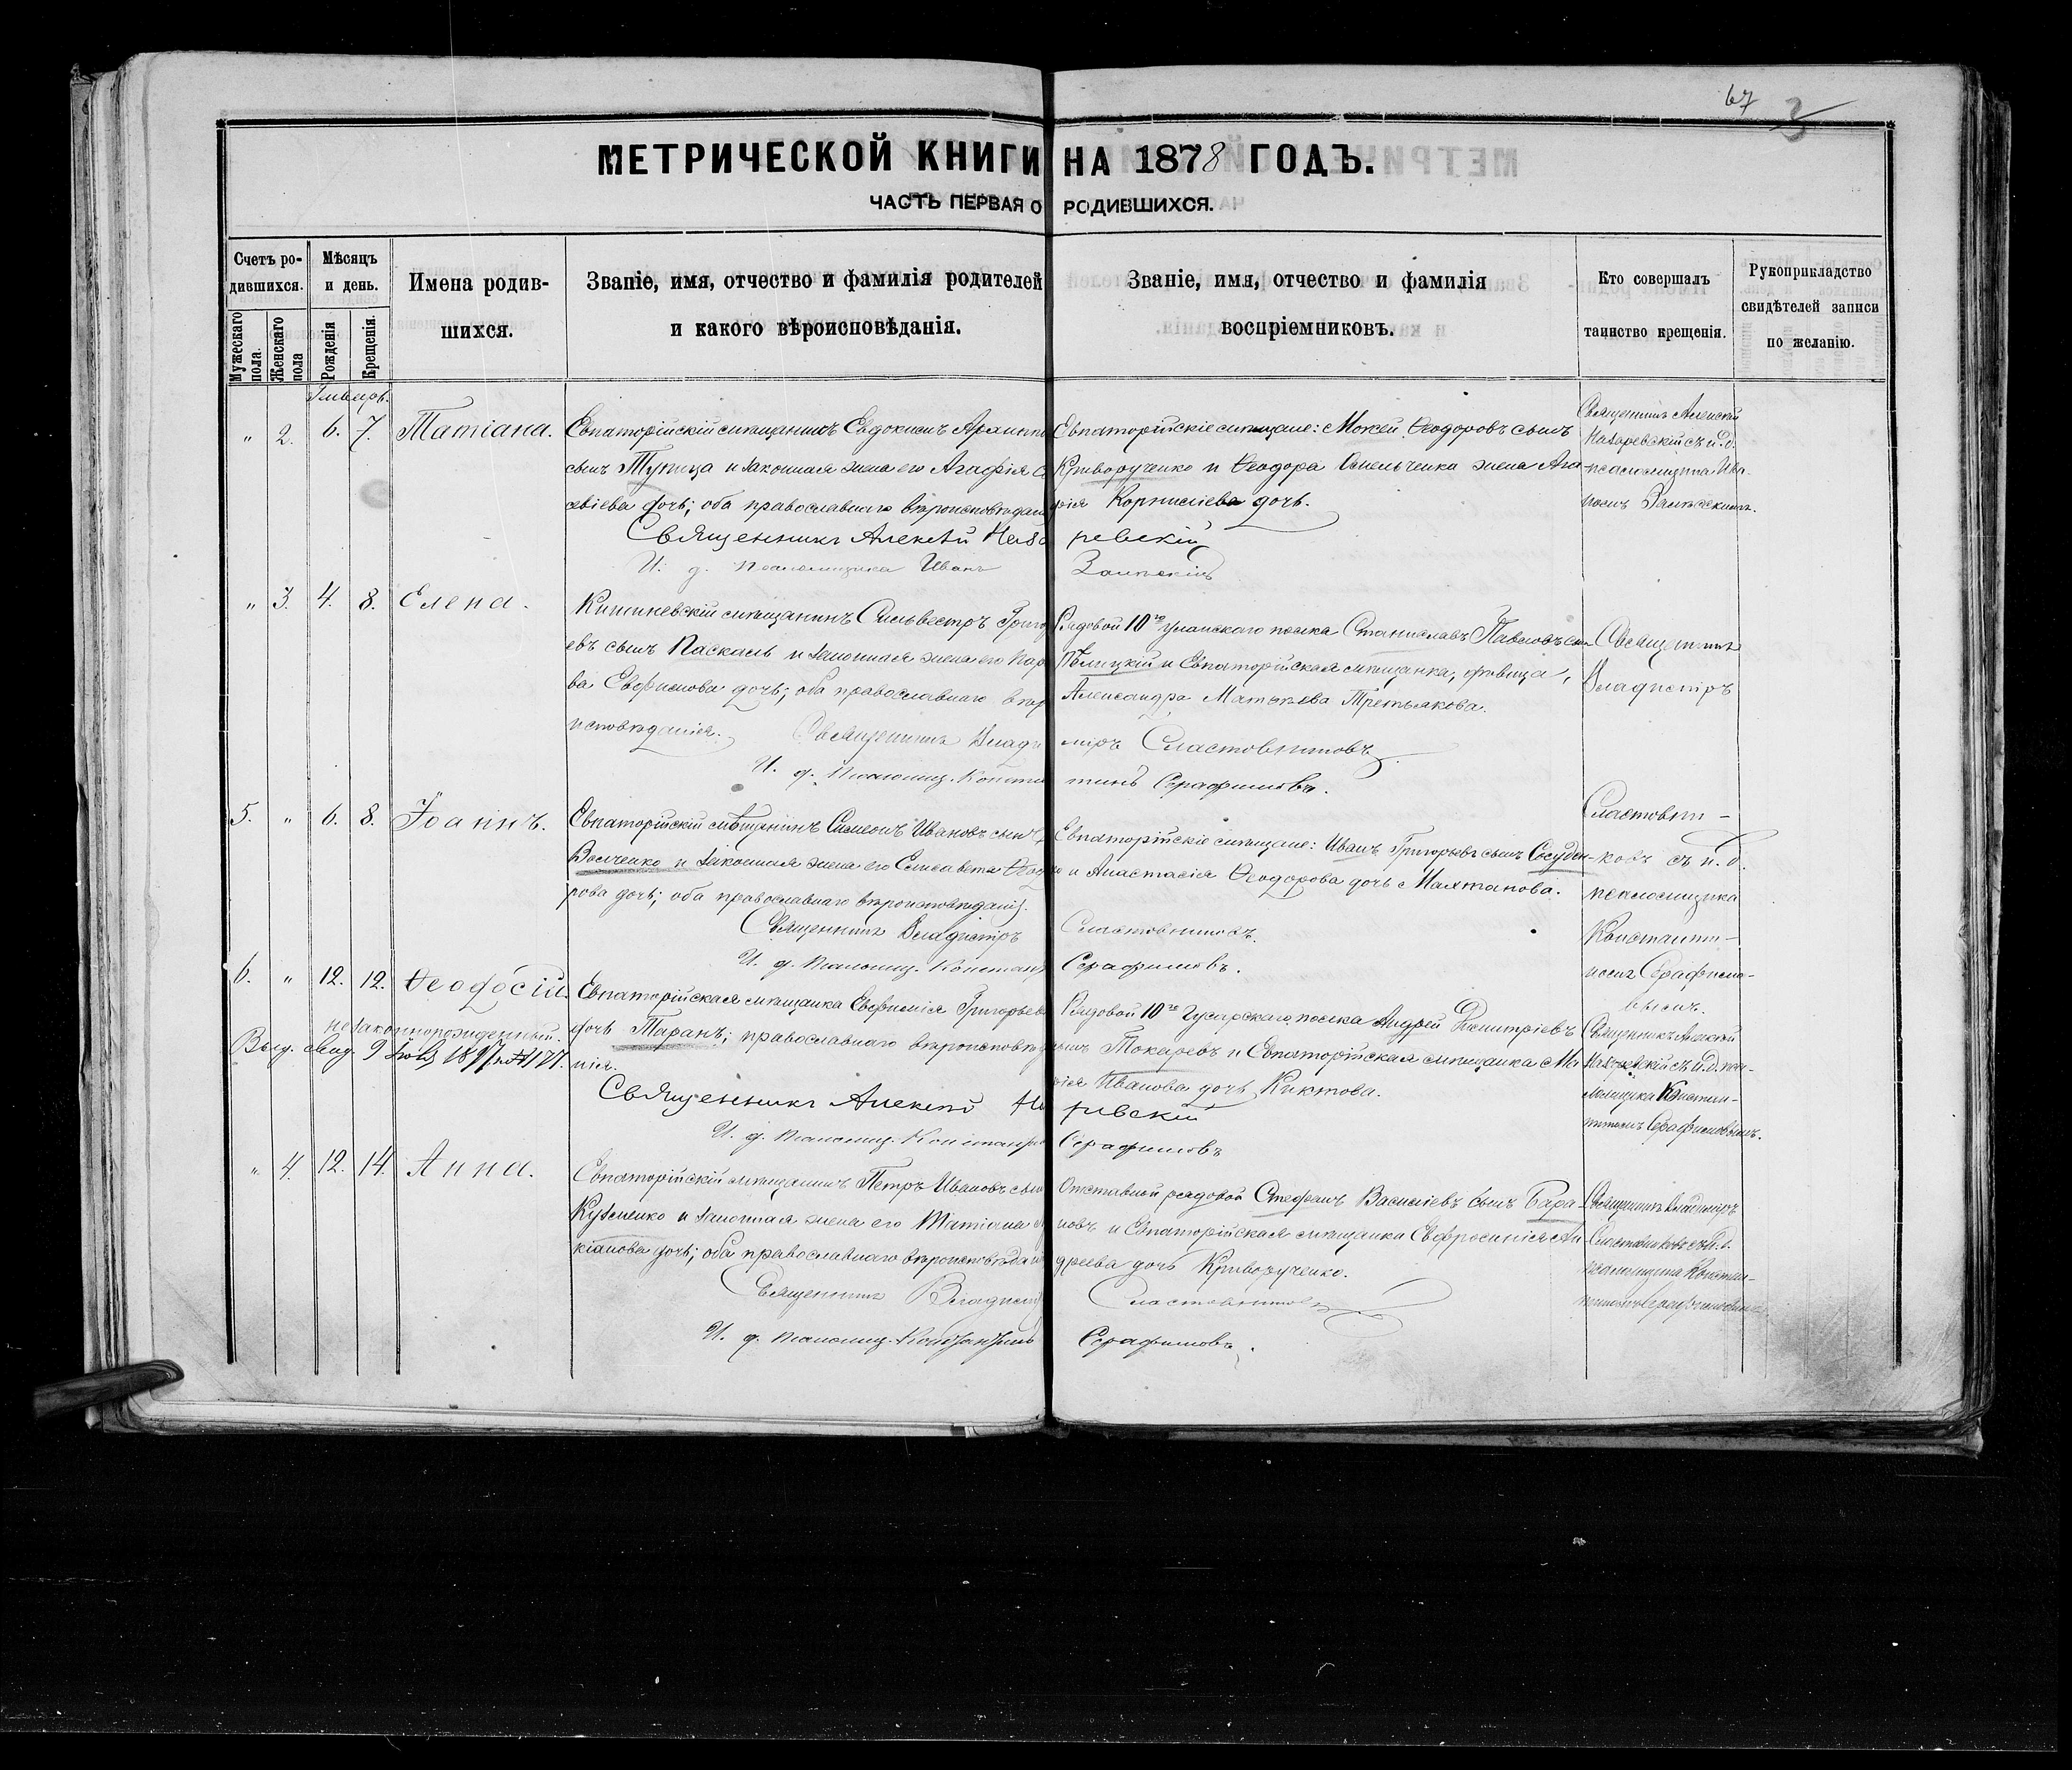 67 3
МЕТРИЧЕСКОЙ КНИГИ НА 1878 ГОДЪ.
ЧАСТЬ ПЕРВАЯ О РОДИВШИХСЯ.
Счетъ родившихся.
Мужескаго пола.
Женскаго пола
Мѣсяцъ и день.
Рожденія
Крещенія.
Имена родив-
шихся.
Званіе, имя, отчество и фамилія родителей
и какого вѣроисповѣданія.
Званіе, имя, отчество и фамилія
воспріемниковъ.
Кто совершалъ
таинство крещенія.
Рукоприкладство
свидѣтелей записи
по желанію.
Январь.
" 2. 6. 7. Татіана.
Евпаторійскій мѣщанинъ Евдокимъ Архипп
сынъ Тупица и законная жена его Агафія С
евіева дочь; оба православнаго вѣроисповѣдан
Священникъ Алексѣй Наза ревскій
И. д. Псаломщика Иванъ Залѣскій
Евпаторійскіе мѣщане: Мокей Ѳеодоровъ сынъ
Криворученко и Ѳеодора Омельченка жена Ага-
фія Корнилiева дочь.
Священникъ Алексѣй
Назаревскій съ и. д.
псаломщика Ива-
номъ Залѣскимъ.
" 3. 4. 8. Елена.
Кишиневскій мѣщанинъ Сильвестръ Григор
евъ сынъ Паскаль и законная жена его Пар
ва Евфимова дочь; оба православнаго вѣро
исповѣданія.
Священникъ Влади міръ Сластовниковъ
И. д. Псаломщ. Констан тинъ Серафимовъ.
Рядовой 10го Уланскаго полка Станиславъ Павловъ сынъ
Бѣлицкій и Евпаторійская мѣщанка, дѣвица,
Александра Матвѣева Третьякова.
Священникъ
Владиміръ
Сластовни-
ковъ съ и. д.
псаломщика
Константи-
номъ Серафимо-
вымъ.
5. " 6. 8. Іоаннъ.
Евпаторійскій мѣщанинъ Симеонъ Ивановъ сынъ
Волченко и законная жена его Елисавета Ѳеод
рова дочь; оба православнаго вѣроисповѣданія.
Священникъ Владиміръ Сластовниковъ.
И. д. Псаломщ. Констант Серафимовъ.
Евпаторійскіе мѣщане: Иванъ Григорьевъ сынъ Сосуден-
ко и Анастасія Ѳеодорова дочь Малтанова.
6. " 12. 12. Ѳеодосій.
незаконнорожденный.
Выд. свид. 9 1897 № 177.
Евпаторійская мѣщанка Евфимія Григорьева
дочь Таранъ; православнаго вѣроисповѣда
нія.
Священникъ Алексѣй На ревскій
И. д. Псаломщ. Константи Серафимовъ
Рядовой 10го Гусарскаго полка Андрей Димитріевъ
сынъ Токаревъ и Евпаторійская мѣщанка Ма
рія Иванова дочь Киктова.
Священникъ Алексѣй
Назаревскій съ и. д. пса-
ломщика Констан-
тиномъ Серафимовымъ.
" 4. 12. 14. Анна.
Евпаторійскій мѣщанинъ Петръ Ивановъ сынъ
Кузменко и законная жена его Татіана
кіанова дочь; оба православнаго вѣроисповѣдан
Священникъ Владимі Сластовниковъ
И. д. Псаломщ. Константинъ Серафимовъ.
Отставной рядовой Стефанъ Василіевъ сынъ Бара-
новъ и Евпаторійская мѣщанка Евфросинія Ан-
дреева дочь Криворученко.
Священникъ Владиміръ
Сластовниковъ съ и. д.
псаломщика Констан-
тиномъ Серафимовымъ.